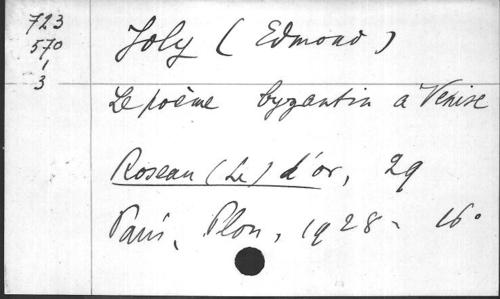 723
570
1
3
Joly (Edmond)
Le poème byzantin à Venise
Roseau (Le) d'or, 29
Paris, Plon, 1928. 16°